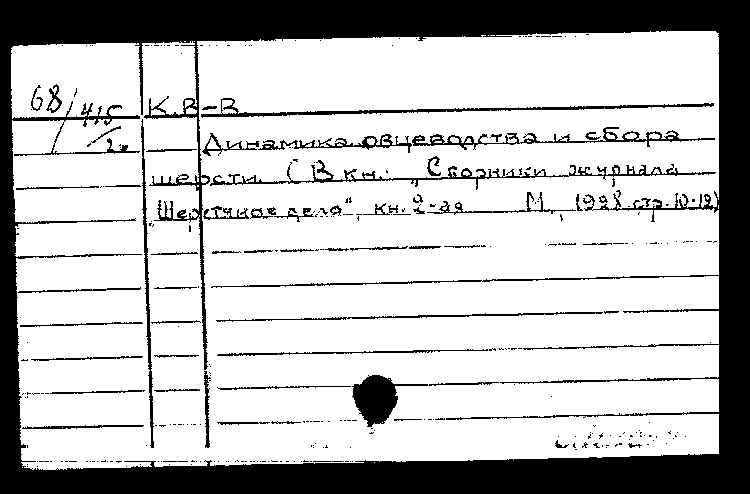 68/415 К.В-В
2
Динамика овцеводства и сбора
шерсти. (В кн.: „Сборники журнала
„Шерстяное дело", кн. 2-ая М., 1928 стр. 10-12)